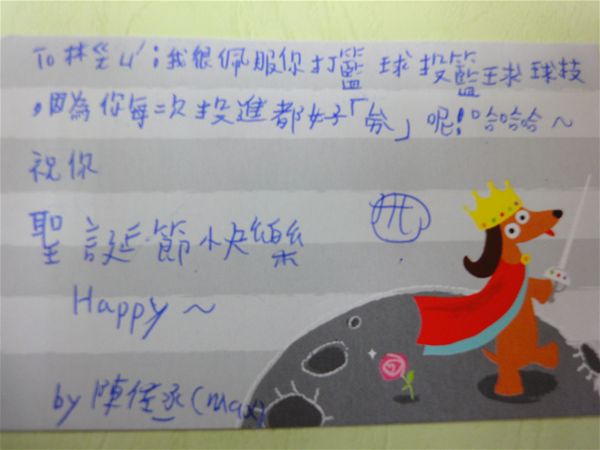 To 林:我很佩服你打籃球投籃球球技
,因為你每一次投進都好「夯」呢!哈哈哈~
祝你
聖誕節快樂
Happy~
by 陳佳丞(max)